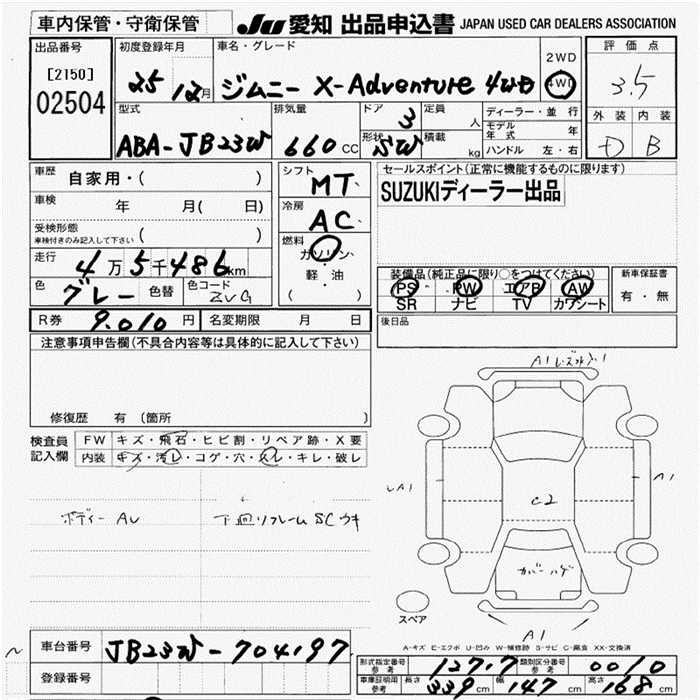 車内保管・守衛保管 JU 愛知 出品申込書 JAPAN USED CAR DEALERS ASSOCIATION
出品番号 [2150] 02504
初度登録年月 25 12月
車名・グレード ジムニー X-Adventure 4WD
2WD 4WD
評価点 3.5
外装 D 内装 B
型式 ABA-JB23W
排気量 660 CC
ドア 3 形状 SW
定員 人 積載 kg
ディーラー・並行
モデル年式 年
ハンドル 左・右
車歴 自家用・( )
車検 年 月( 日)
受検形態
車検付きのみ記入して下さい ( )
走行 4万5千486km
色 グレー 色替 色コード ZVG
シフト MT
冷房 AC
燃料 ガソリン・軽油 ( )
セールスポイント(正常に機能するものに限ります)
SUZUKIディーラー出品
装備品(純正品に限り○をつけてください)
PS PW エアB AW
SR ナビ TV カワシート
新車保証書 有・無
R券 9.010 円 名変期限 月 日
後日品
注意事項申告欄(不具合内容等は具体的に記入して下さい)
修復歴 有(箇所 )
検査員記入欄 FW キズ・飛石・ヒビ割・リペア跡・X要
内装 キズ・汚レ・コゲ・穴・スレ・キレ・破レ
ボディー AU
下回リフレームSCウキ
A1
A1
A1
C2
カバーハゲ
スペア
A1
A-キズ E-エクボ U-凹み W-補修跡 S-サビ C-腐食 XX-交換済
車台番号 JB23W-704197
登録番号
形式指定番号 参考 12717 類別区分番号 参考 0010
車庫証明用 参考 長さ 339cm 幅 147cm 高さ 168cm